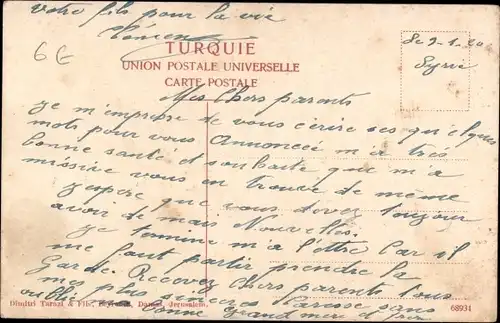 votre fils pour la vie
6E
TURQUIE
UNION POSTALE UNIVERSELLE
CARTE POSTALE
Le 9-1-20
Syrie
Mes Chers parents
je m'empresse de vous écrire ses quelques
mots pour vous Annoncée m'a très
bonne santé et souhaite que m'a
missive vous en trouve de même
J'espère que vous devez toujour
avoir de mais Nouvelles.
Je termine m'a l'ettre Car il
me faut partir prendre la
Garde. Recevez Chers parents tous
mes plus Caresse sans
oublié bonne grand mère et
Dimitri Tarazi & Fils, Damas, Jerusalem.
68931